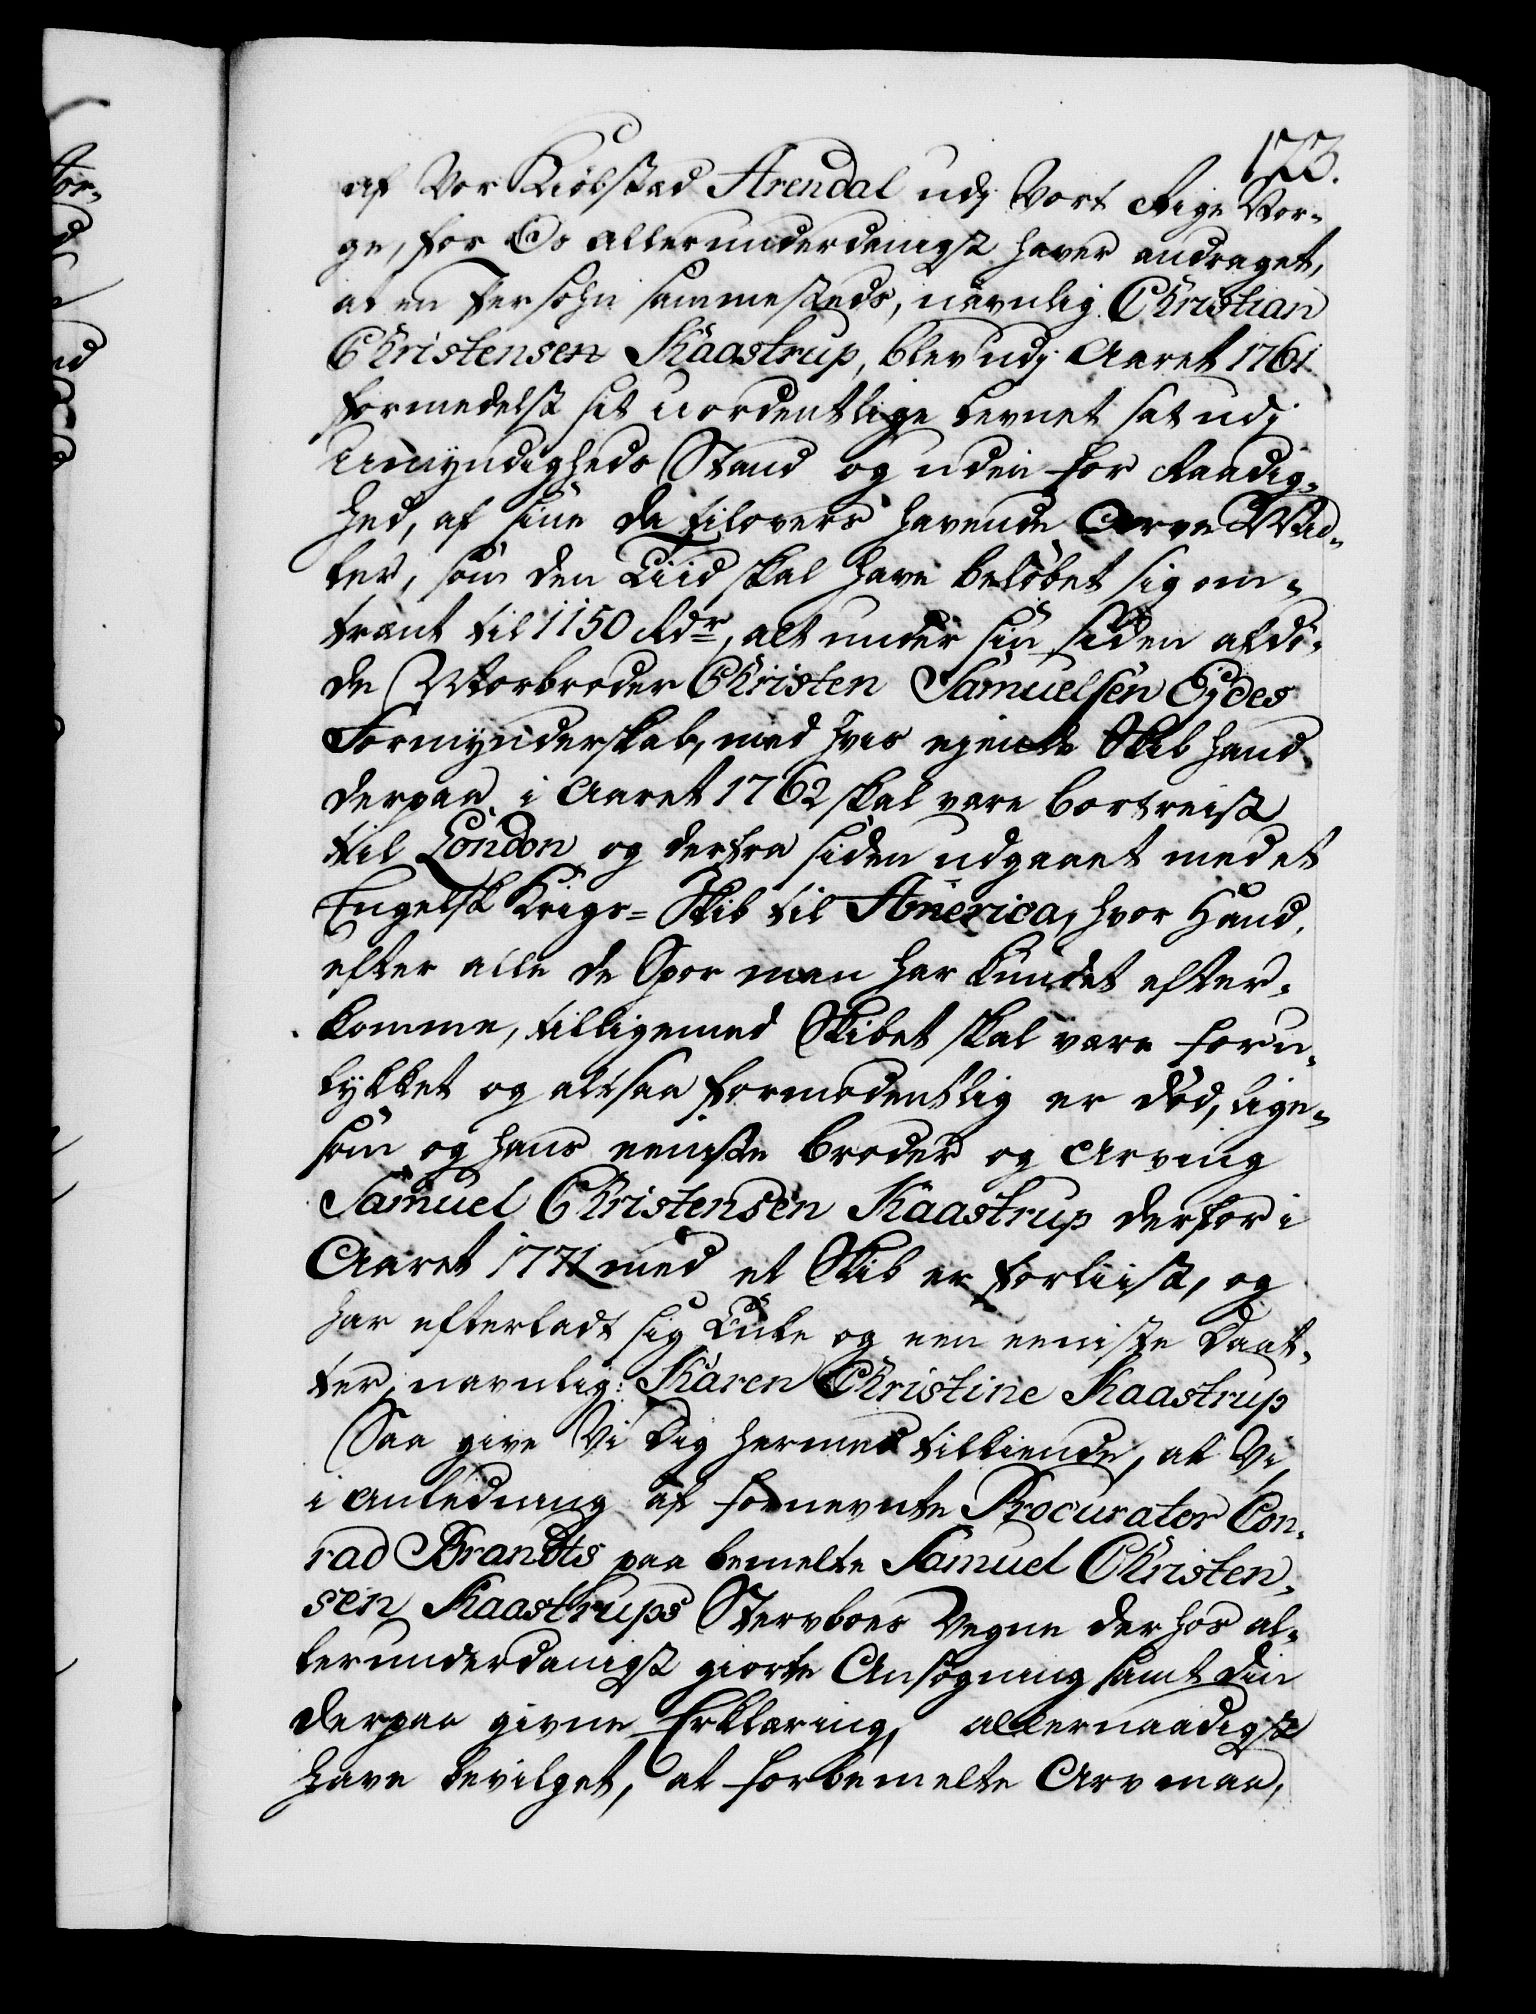 123.
af Vor Kiøbstæd Arendal udj Vort Rige Nor-
ge, for Os allerunderdanigst haver andraget,
at en Persohn sammesteds, nævnlig Christian
Christensen Kaastrup, blev udj Aaret 1761
formedelst sit uordentlige Levnet sat udj
Umyndigheds Stand og uden for Raadig-
hed, af sine da tilovers havende Arve Mid-
ler, som den Tiid skal have beløbet sig om-
trent til 1150 Rdr, alt under sin siden afdø-
de Morbroder Christen Samuelsen Eides
Formynderskab, med hvis ejende Skib hand
derpaa i Aaret 1762 skal være bortreist
til London og derfra siden udgaaet med et
Engelsk Krigs-Skib til America, hvor Hand,
efter alle de Spor man har kundet efter-
komme, tilligemed Skibet skal være foru-
lykket og altsaa formodentlig er død, lige-
som og hans eeniste Broder og Arving
Samuel Christensen Kaastrup derfor i
Aaret 1771 med et Skib er forliist, og
har efterladt sig Enke og een eeniste Daat-
ter, navnlig: Karen Christine Kaastrup
Saa give Vi Dig hermed tilkiende, at Vi
i Anledning af fornevnte Procurator Con-
rad Brandts paa bemelte Samuel Christen-
sen Kaastrups Stervboes Vegne derhos al-
lerunderdanigst giorte Ansøgning samt Din
derpaa givne Erklæring, allernaadigst
have bevilget, at forbemelte Arv maa,